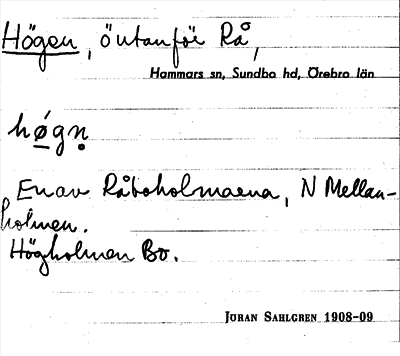 Högen, ö utanför Rå,
Hammars sn, Sundbo hd, Örebro län
høgn̥
En av Råboholmarna, N Mellan-
holmen.
Högholmen Bo.
JÖRAN SAHLGREN 1908-09